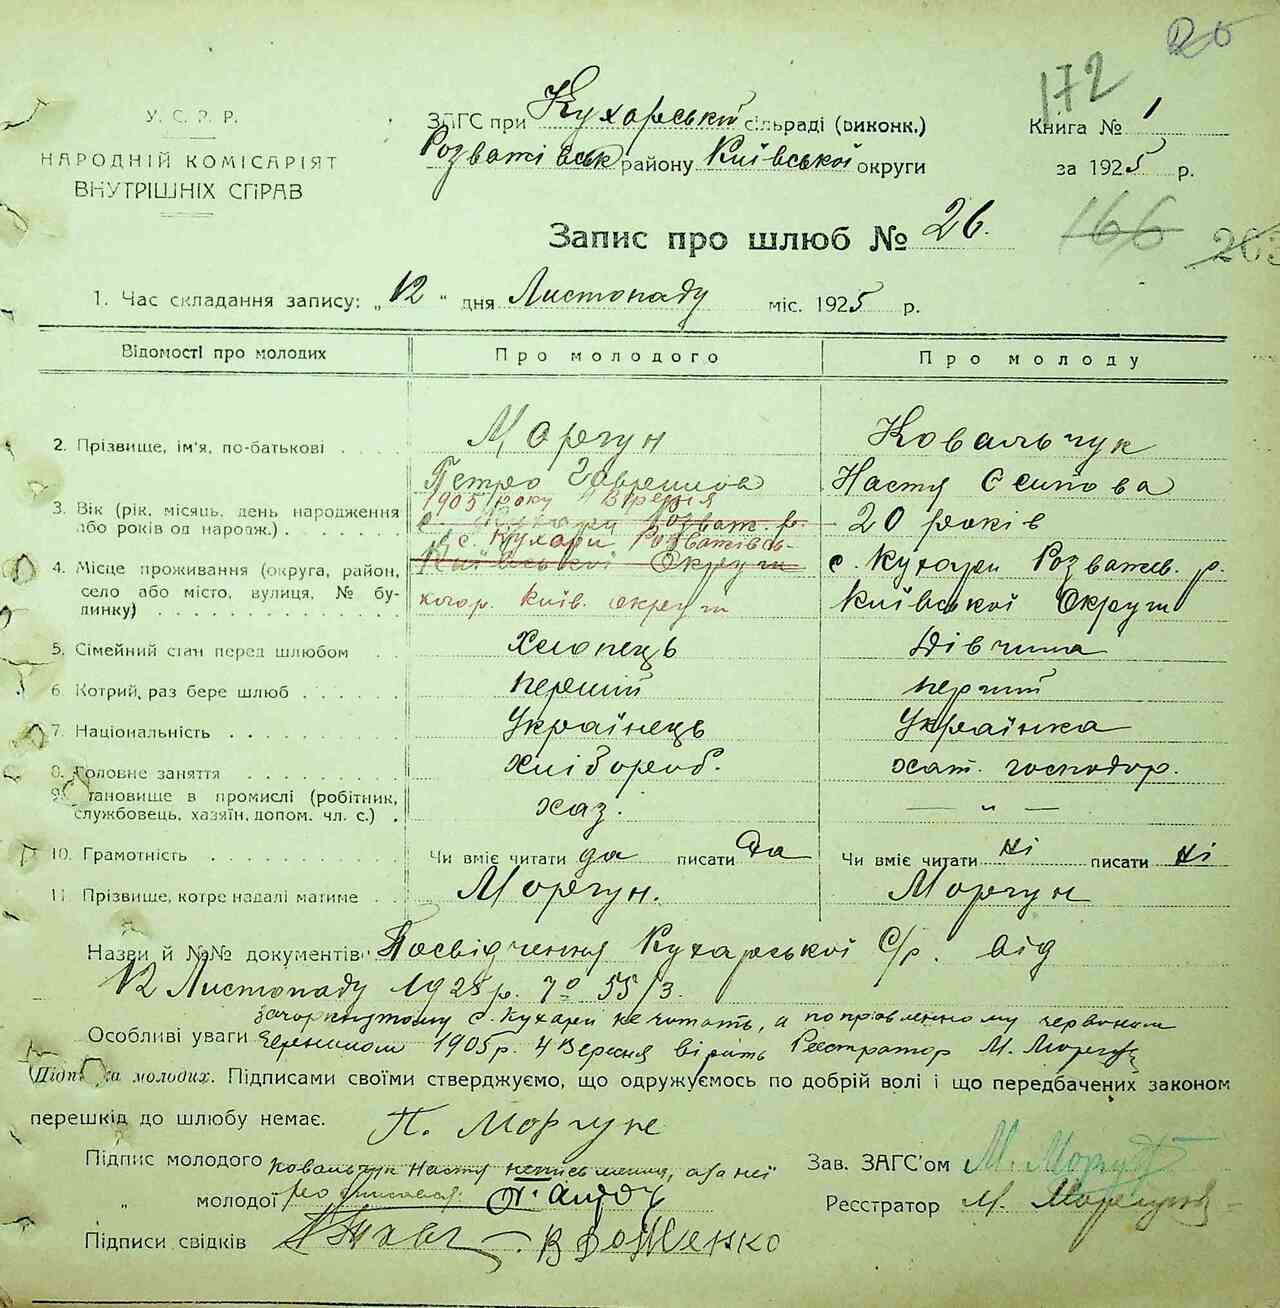 172
У. С. Р. Р.
НАРОДНІЙ КОМІСАРІЯТ
ВНУТРІШНІХ СПРАВ
ЗАГС при Кухарській сільраді (виконк.)
Розватівськ району Київської округи
Книга № 1
за 1925 р.
Запис про шлюб № 26.
166
1. Час складання запису: „12" дня Листопаду міс. 1925 р.
Відомості про молодих
Про молодого
Про молоду
2. Прізвище, ім'я, по-батькові
Моргун
Ковальчук
Петро
Настя Єсипова
1905 року Вресня
3. Вік (рік, місяць, день народження або років од народж.)
с. Кухари Розваж. р.
20 років
с. Кухари Розважівсь-
4. Місце проживання (округа, район, село або місто, вулиця, № будинку)
Київської Округи
с. Кухари Розважів. р.
кого р. Київ. округи
Київської Округи
5. Сімейний стан перед шлюбом
Хлопець
Дівчина
6. Котрий раз бере шлюб
перший
перший
7. Національність
Українець
Українка
8. Головне заняття
хлібороб.
хат. господар.
9. Становище в промислі (робітник, службовець, хазяїн, допом. чл. с.)
хаз.
— " —
10. Грамотність
Чи вміє читати да писати да
Чи вміє читати ні писати ні
11. Прізвище, котре надалі матиме
Моргун.
Моргун
Назви й №№ документів Посвідчення Кухарської С/р. від
12 Листопаду 1925 р. № 55/3.
зачоркнутому с. Кухари не читать, а поправленному червоним
Особливі уваги Чернилом 1905 р. 4 Вересня вірить Реєстратор М. Моргун
(Підписи молодих. Підписами своїми стверджуємо, що одружуємось по добрій волі і що передбачених законом
перешкід до шлюбу немає.
П. Моргун
Підпис молодого Ковальчук Настя неписьменна, а за неї
„ молодої
Зав. ЗАГС'ом М. Моргун
Реєстратор М. Моргун
Підписи свідків